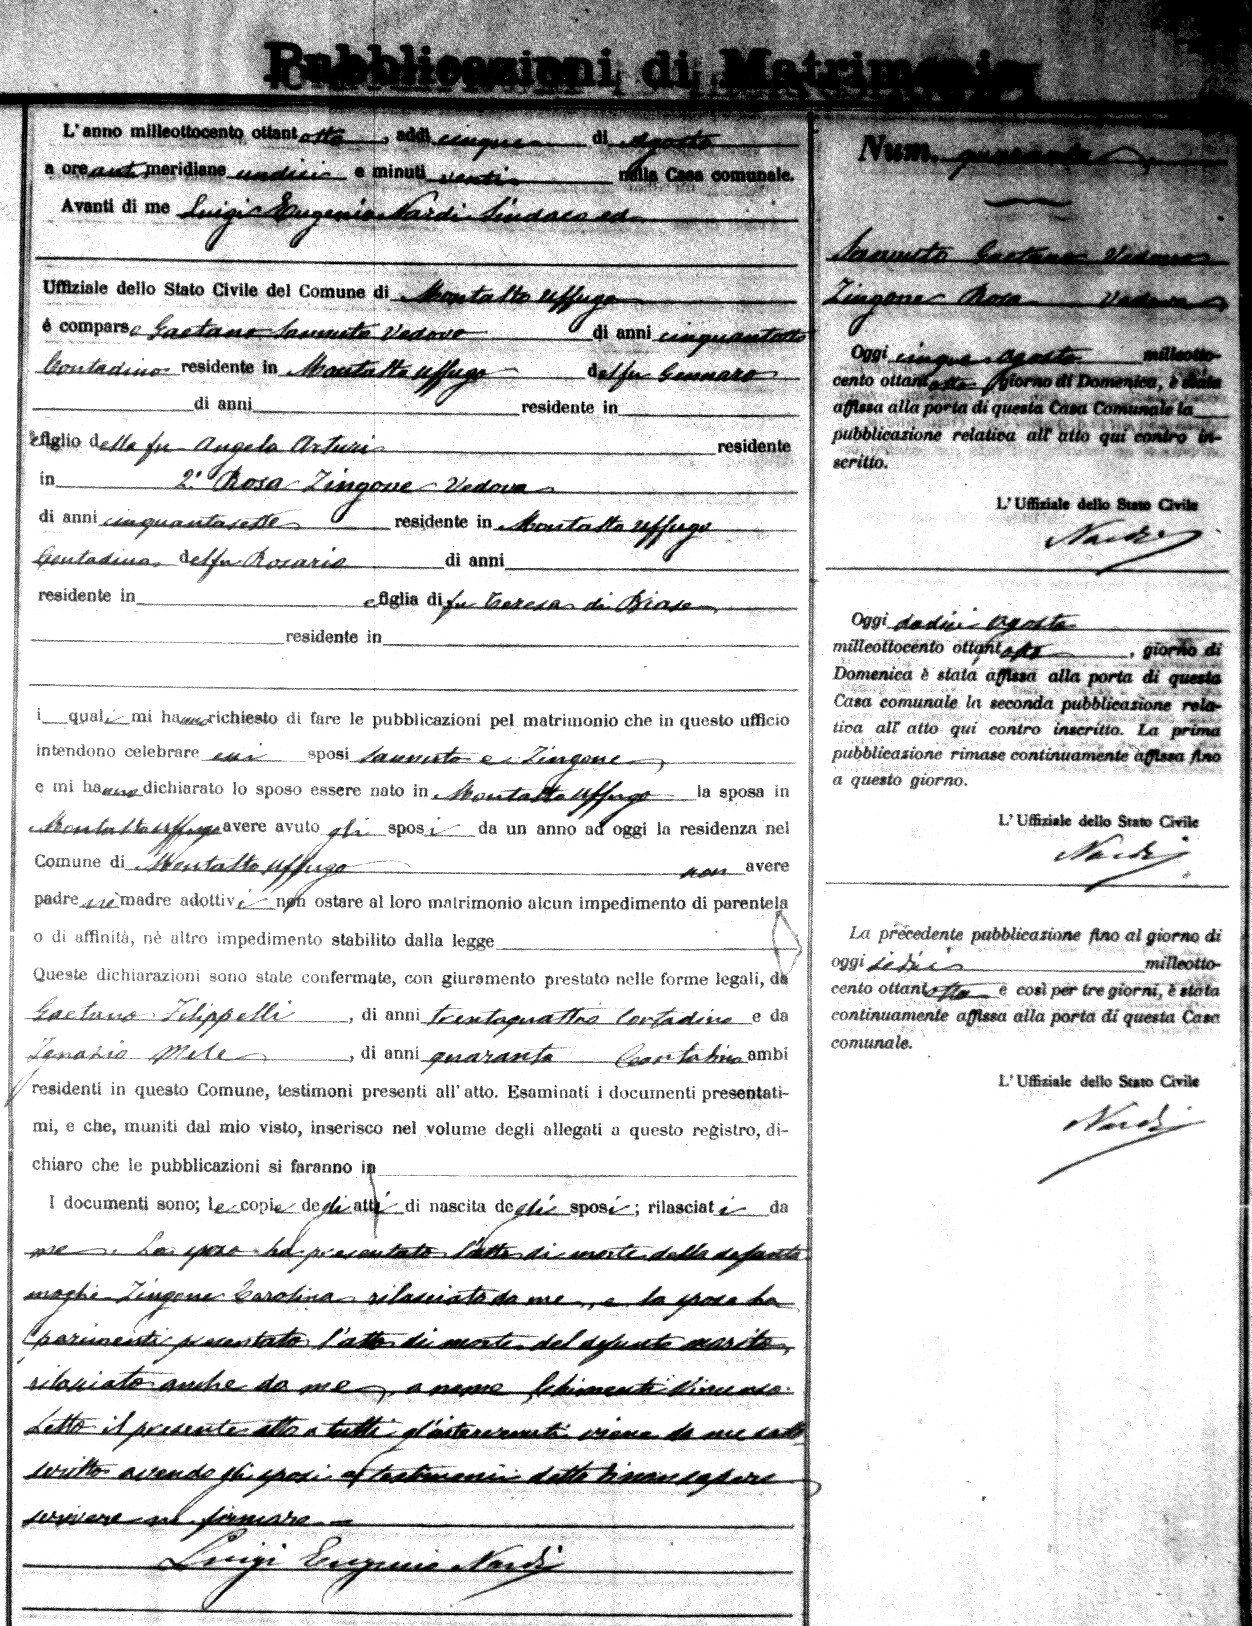 Pubblicazioni di Matrimonio
L'anno milleottocento ottantotto, addì cinque di Agosto
a ore anti meridiane undici e minuti venti nella Casa comunale.
Avanti di me Luigi Eugenio Nardi Sindaco ed
Uffiziale dello Stato Civile del Comune di Montalto Uffugo
è comparso Gaetano Sannuto Vedovo di anni cinquantotto
Contadino residente in Montalto Uffugo del fu Gennaro
di anni residente in
e figlio della fu Angela Arturi residente
in 2.° Rosa Zingone Vedova
di anni cinquantasette residente in Montalto Uffugo
Contadina del fu Rosario di anni
residente in e figlia di fu Teresa di Biase
residente in
i quali mi hanno richiesto di fare le pubblicazioni pel matrimonio che in questo ufficio
intendono celebrare essi sposi Sannuto e Zingone
e mi hanno dichiarato lo sposo essere nato in Montalto Uffugo la sposa in
Montalto Uffugo avere avuto gli sposi da un anno ad oggi la residenza nel
Comune di Montalto Uffugo non avere
padre nè madre adottivi non ostare al loro matrimonio alcun impedimento di parentela
o di affinità, nè altro impedimento stabilito dalla legge
Queste dichiarazioni sono state confermate, con giuramento prestato nelle forme legali, da
Gaetano Filippelli, di anni trentaquattro Contadino e da
Ignazio Mele, di anni quaranta Contadino ambi
residenti in questo Comune, testimoni presenti all'atto. Esaminati i documenti presentati-
mi, e che, muniti dal mio visto, inserisco nel volume degli allegati a questo registro, di-
chiaro che le pubblicazioni si faranno in
I documenti sono; le copie degli atti di nascita degli sposi; rilasciati da
me. Lo sposo ha presentato l'atto di morte della defunta
moglie Zingone Carolina rilasciato da me, e la sposa ha
parimenti presentato l'atto di morte del defunto marito,
rilasciato anche da me, a nome Chimenti Vincenzo.
Letto il presente atto a tutti gl'intervenuti viene da me sotto
scritto avendo gli sposi e testimoni detto di non sapere
scrivere ne firmare.
Luigi Eugenio Nardi
Num. quaranta
Sannuto Gaetano Vedovo
Zingone Rosa Vedova
Oggi cinque Agosto milleotto-
cento ottantotto giorno di Domenica, è stata
affissa alla porta di questa Casa Comunale la
pubblicazione relativa all'atto qui contro in-
scritto.
L'Uffiziale dello Stato Civile
Nardi
Oggi dodici Agosto
milleottocento ottantotto, giorno di
Domenica è stata affissa alla porta di questa
Casa comunale la seconda pubblicazione rela-
tiva all'atto qui contro inscritto. La prima
pubblicazione rimase continuamente affissa fino
a questo giorno.
L'Uffiziale dello Stato Civile
Nardi
La precedente pubblicazione fino al giorno di
oggi sedici milleotto-
cento ottantotto e così per tre giorni, è stata
continuamente affissa alla porta di questa Casa
comunale.
L'Uffiziale dello Stato Civile
Nardi